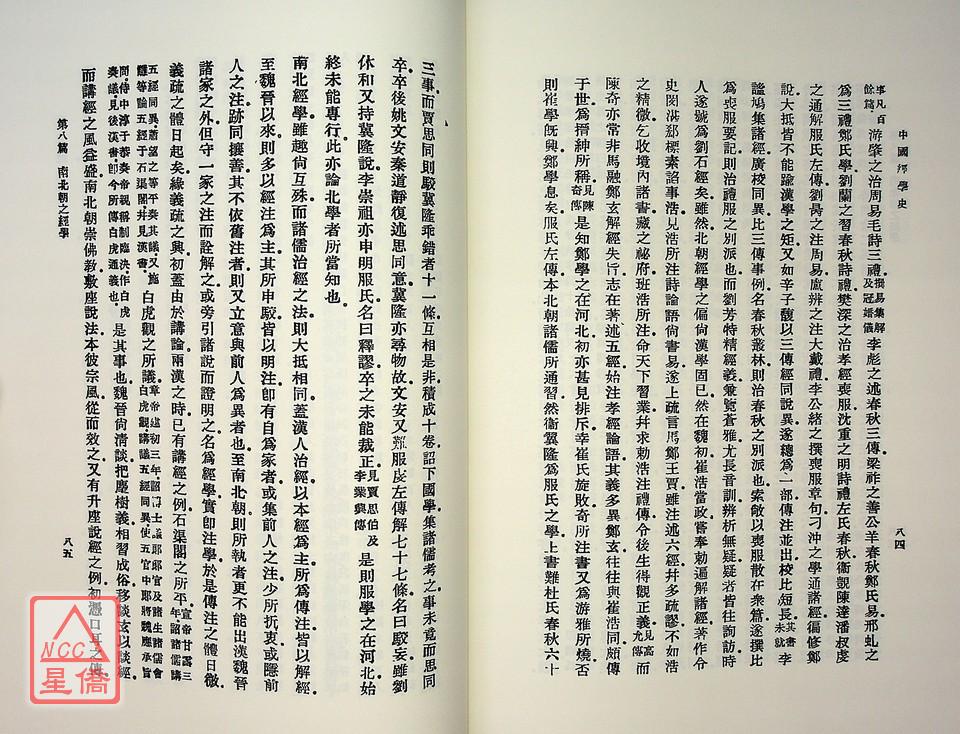 中國經學史
八四
事凡百餘篇游肇之治周易毛詩三禮撰易集解及冠婚儀李彪之述春秋三傳梁祚之善公羊春秋鄭氏易邢虬之
為三禮鄭氏學劉蘭之習春秋詩禮樊深之治孝經喪服沈重之明詩禮左氏春秋衞覬陳達潘叔虔
之通解服氏左傳劉昺之注周易盧辨之注大戴禮李公緒之撰喪服章句刁沖之學通諸經徧修鄭
說大抵皆不能踰漢學之矩又如辛子馥以三傳經同說異遂總為一部傳注並出校比短長其書未就李
謐鳩集諸經廣校同異比三傳事例名春秋叢林則治春秋之別派也索敞以喪服散在衆篇遂撰比
為喪服要記則治禮服之別派也而劉芳特精經義兼覽蒼雅尤長音訓辨析無疑疑者皆往詢訪時
人遂號為劉石經矣雖然北朝經學之偏尚漢學固已然在魏初崔浩當政嘗奉勅遍解諸經著作令
史閔湛郄標素諂事浩見浩所注詩論語尚書易遂上疏言馬鄭王賈雖注述六經幷多疏謬不如浩
之精微乞收境內諸書藏之祕府班浩所注命天下習業幷求勅浩注禮傳令後生得觀正義見高允傳而
陳奇亦常非馬融鄭玄解經失旨志在著述五經始注孝經論語其義多異鄭玄往往與崔浩同頗傳
于世為搢紳所稱見陳奇傳是知鄭學之在河北初亦甚見排斥幸崔氏旋敗奇所注書又為游雅所燒否
則崔學旣興鄭學息矣服氏左傳本北朝諸儒所通習然衞冀隆為服氏之學上書難杜氏春秋六十
三事而賈思同則駁冀隆乖錯者十一條互相是非積成十卷詔下國學集諸儒考之事未竟而思同
卒卒後姚文安秦道靜復述思同意冀隆亦尋物故文安又難服虔左傳解七十七條名曰駁妄雖劉
休和又持冀隆說李崇祖亦申明服氏名曰釋謬卒之未能裁正見賈思伯及李業興傳是則服學之在河北始
終未能專行此亦論北學者所當知也
南北經學雖趣尚互殊而諸儒治經之法則大抵相同蓋漢人治經以本經為主所為傳注皆以解經
至魏晉以來則多以經注為主其所申駁皆以明注卽有自為家者或集前人之注少所折衷或隱前
人之注跡同攘善其不依舊注者則又立意與前人為異者也至南北朝則所執者更不能出漢魏晉
諸家之外但守一家之注而詮解之或旁引諸說而證明之名為經學實卽注學於是傳注之體日微
義疏之體日起矣緣義疏之興初蓋由於講論兩漢之時已有講經之例石渠閣之所平宣帝甘露三年詔諸儒講
五經同異蕭望之等平奏其議又施讎等論五經于石渠閣幷見漢書白虎觀之所議章帝建初三年詔博士議郎郎官及諸生諸儒會白虎觀講議五經同異使五官中郎將魏應承旨
問侍中淳于恭奏帝親稱制臨決作白虎奏議見後漢書卽今所傳白虎通義也是其事也魏晉尚清談把麈樹義相習成俗移談玄以談經
而講經之風益盛南北朝崇佛教敷座說法本彼宗風從而效之又有升座說經之例初憑口耳之傳
第八篇 南北朝之經學
八五
NCC
星僑